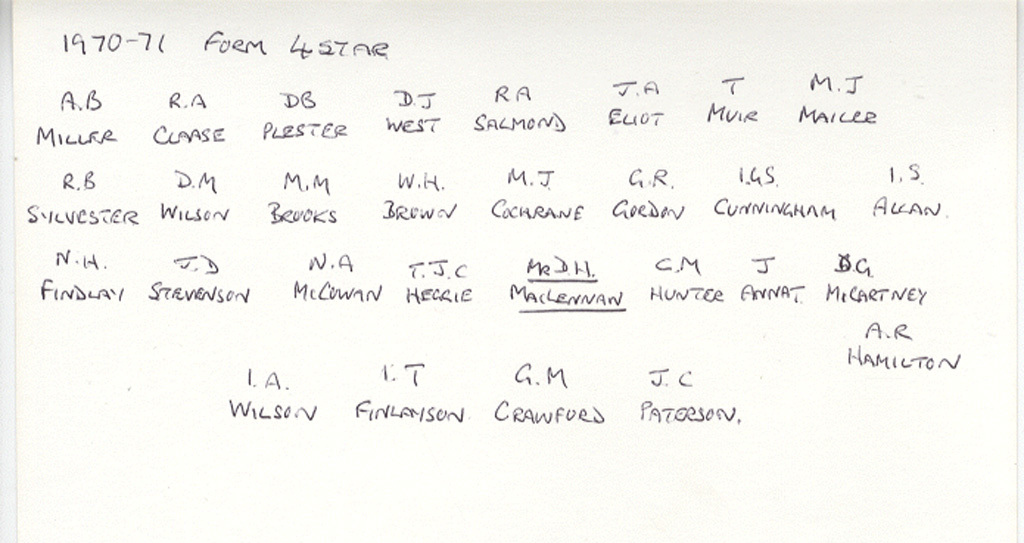 1970-71 FORM 4 STAR
A.B R.A DB D.J RA J.A T M.J
MILLER CLAASE PLESTER WEST SALMOND ELIOT MUIR MAILER
R.B D.M M.M W.H. M.J. G.R. I.G.S. I.S.
SYLVESTER WILSON BROOKS BROWN COCHRANE GORDON CUNNINGHAM ALLAN.
N.H. J.D N.A T.J.C MR D.H. C.M J D.G.
FINDLAY STEVENSON McCOWAN HEGGIE MACLENNAN HUNTER ANNAT. McCARTNEY
A.R
HAMILTON
I.A. I.T G.M J.C
WILSON FINLAYSON CRAWFORD PATERSON.